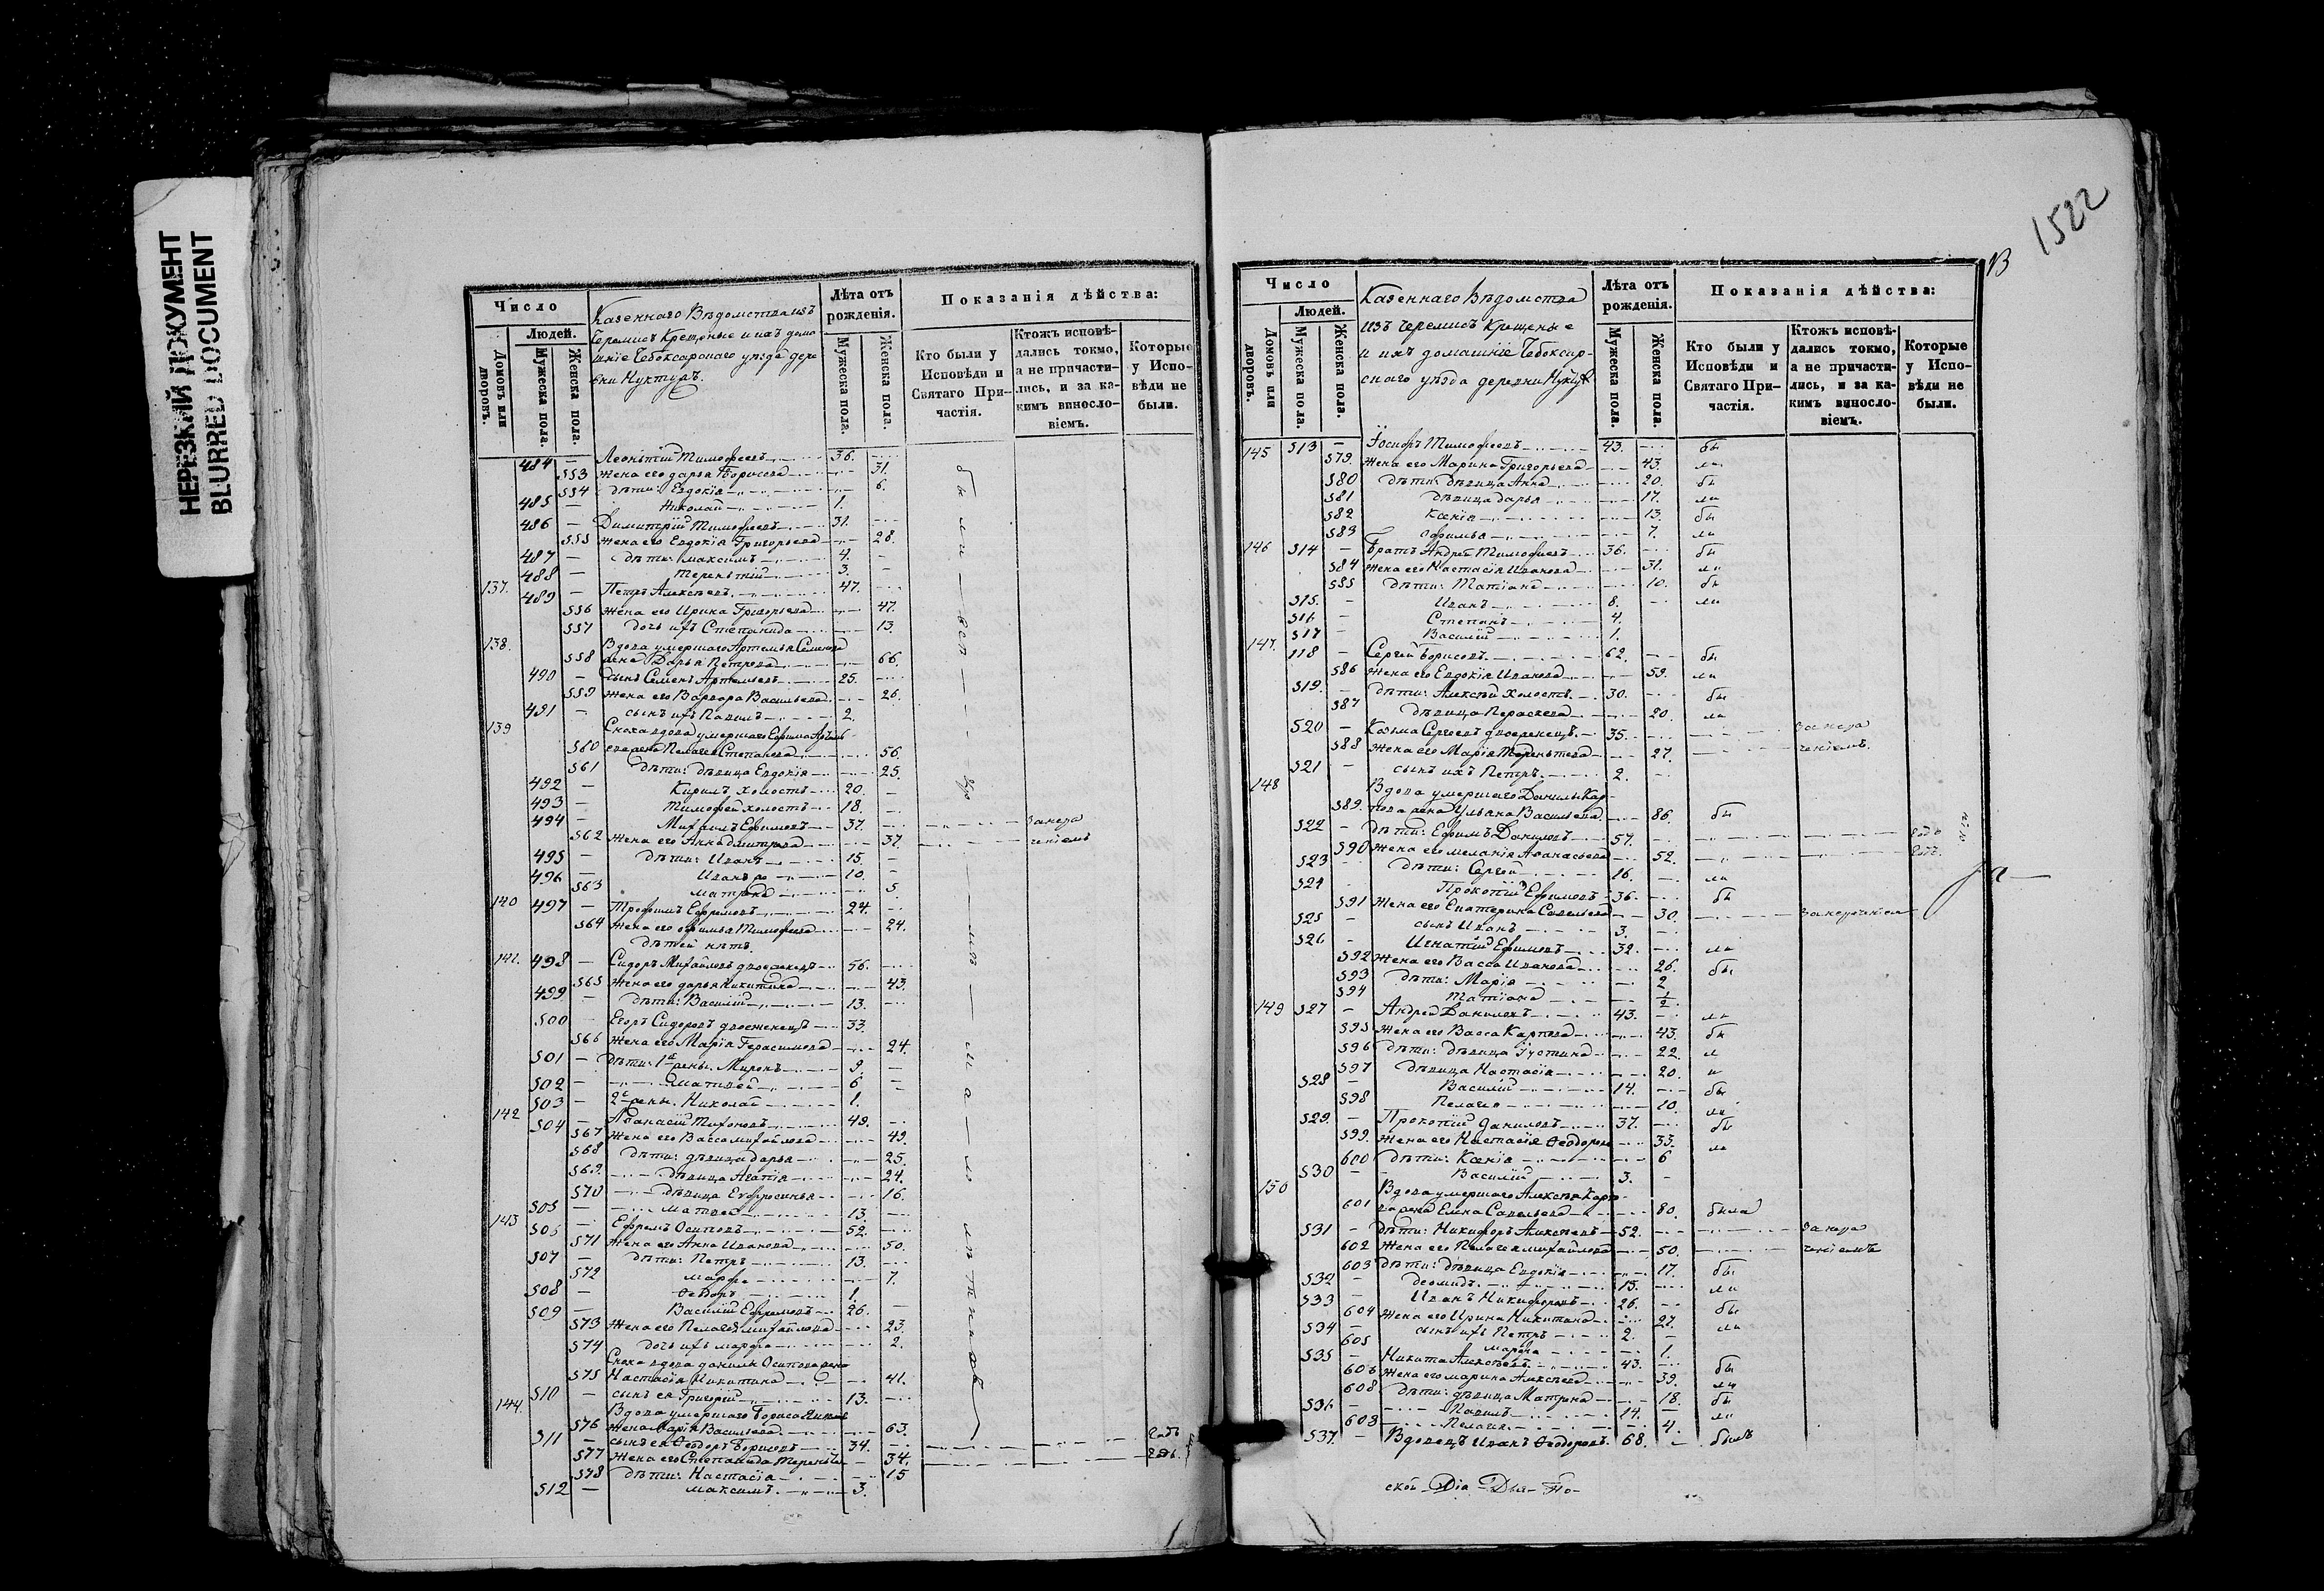 НЕРЕЗКИЙ ДОКУМЕНТ
BLURRED DOCUMENT
Число
Людей.
Домовъ или дворовъ.
Мужеска пола.
Женска пола.
Казеннаго Вѣдомства изъ
Черемисъ Крещеные и ихъ дома
шніе Чебоксарскаго уѣзда дере
вни
Лѣта отъ рожденія.
Мужеска пола.
Женска пола.
Показанія дѣйства:
Кто были у Исповѣди и Святаго Причастія.
Ктожъ исповѣдались токмо, а не причастились, и за какимъ винословіемъ.
Которые у Исповѣди не были.
484 — Леонтій Тимофеевъ 36.
553 Жена его Дарья Борисова 31.
554 дѣти: Евдокія 6.
485 — Николай 1.
486 — Димитрій Тимофеевъ 31.
555 Жена его Евдокія Григорьева 28.
487 — дѣти: Максимъ 4.
488 — Терентій 3.
137. 489 — Петръ Алексѣевъ 47.
556 Жена его Ирина Григорьева 47.
557 дочь ихъ Степанида 13.
138. Вдова умершаго Артемья Семенова
558 жена Дарья Петрова 66.
490 — сынъ Семенъ Артемьевъ 25.
559 Жена его Варвара Васильева 26.
491 — сынъ ихъ Павилъ 2.
139 Сноха вдова умершаго Ефима
560 жена Пелагея Степанова 56.
561 дѣти: дѣвица Евдокія 25.
492 — Кирилъ холостъ 20.
493 — Тимофей холостъ 18.
494 — Михаилъ Ефимовъ 37.
562 Жена его Анна Дмитрева 37.
495 — дѣти: Иванъ 15.
496 — Иванъ 10.
563 Матрена 5.
140 497 — Трофимъ Ефремовъ 24.
564 Жена его Офимья Тимофеева 24.
дѣтей нѣтъ.
141. 498 — Сидоръ Михайловъ двоеженецъ 56.
565 Жена его Дарья Никитина 43.
499 — дѣти: Василій 13.
500 Егоръ Сидоровъ двоеженецъ 33.
566 Жена его Марія Герасимова 24.
501 — Дѣти: 1й жены. Миронъ 9.
502 — Матвей 6
503 — 2й жены. Николай 1.
142 504 — Афанасій Тихоновъ 49.
567 Жена его Васса Михайлова 49.
568 дѣти: дѣвица Дарья 25.
569. дѣвица Агапія 24.
570 — дѣвица Евфросинья 16.
505 — Матвей 13.
143 506 — Ефремъ Осиповъ 52.
571 Жена его Анна Иванова 50.
507 — дѣти: Петръ 13.
572 Марфа 7.
508 — Ѳедоръ 1.
509 — Василій Ефремовъ 26.
573 Жена его Пелагея Михайлова 23.
574 дочь ихъ Марфа 2.
Сноха вдова Данилы Осипова жена
575 Настасія Никитина 41.
510 — сынъ ея Григорій 13.
144. Вдова умершаго Бориса
576 жена Марія Васильева 63.
511 — сынъ ея Ѳеодоръ Борисовъ 34.
577 Жена его Степанида 34.
578 дѣти: Настасія 15
512 — Максимъ 3.
1522
Число
Людей.
Домовъ или дворовъ.
Мужеска пола.
Женска пола.
Казеннаго Вѣдомства
изъ Черемисъ Крещеные
и ихъ домашніе Чебоксар-
скаго уѣзда деревни
Лѣта отъ рожденія.
Мужеска пола.
Женска пола.
Показанія дѣйства:
Кто были у Исповѣди и Святаго Причастія.
Ктожъ исповѣдались токмо, а не причастились, и за какимъ винословіемъ.
Которые у Исповѣди не были.
145 513 — Іосифъ Тимофеевъ 43. бы
579. Жена его Марина Григорьева 43. ли
580 дѣти: дѣвица Анна 20. бы
581 дѣвица Дарья 17. ли
582 Ксенія 13. бы
583 Офимья 7. ли
146 514 — Братъ Андрей Тимофеевъ 36. бы
584 Жена его Настасія Иванова 31. ли
585 дѣти: Татіана 10. бы
515. — Иванъ 8. ли
516 — Степанъ 4.
517 — Василій 1.
147. 118 — Сергей Борисовъ 62. бы
586 Жена его Евдокія Иванова 59. ли
519. — дѣти: Алексѣй холостъ 30. бы
587 дѣвица Параскева 20. ли
520 — Козьма Сергеевъ двоеженецъ 35. За нера
588 Жена его Марія Терентева 27. ченіемъ.
521 — сынъ ихъ Петръ 2.
148 Вдова умершаго Данилы Кар-
589. пова жена Ульяна Васильева 86. бы
522 — дѣти: Ефимъ Даниловъ 57.
590 Жена его Меланія Афанасьева 52.
523 — дѣти: Сергей 16. ли
524 Прокопій Ефимовъ 36. бы
591 Жена его Екатерина Савельева 30. За нераченіемъ
525 — сынъ Иванъ 3.
526 — Игнатій Ефимовъ 32. ли
592 Жена его Васса Иванова 26. бы
593 дѣти: Марія 2
594 Татіана ½.
149 527 — Андрей Даниловъ 43. ли
595 Жена его Васса Карпова 43. бы
596 дѣти: дѣвица Іустина 22. л
597 дѣвица Настасія 20. и
528 — Василій 14. бы
598 Пелагея 10. ли
529. — Прокопій Даниловъ 37. бы
599. Жена его Настасія Ѳеодорова 33. ли
600 дѣти: Ксенія 6
530 — Василій 3.
150 Вдова умершаго Алексѣя Карпо-
601 ва жена Елена Савельева 80. была
531 — дѣти: Никифоръ Алексѣевъ 52. За нера
602 Жена его Пелагея Михайлова 50. ченіемъ
603 дѣти: дѣвица Евдокія 17. бы
532 — Деомидъ 15. ли
533 — Иванъ Никифоровъ 26. бы
604 Жена его Ирина Никитина 27. ли
534 — сынъ ихъ Петръ 2.
605 Марфа 1.
535 — Никита Алексѣевъ 43. бы
606 Жена его Марина Алексѣева 39. ли
608 дѣти: дѣвица Матрена 18. бы
536 — Павилъ 14. ли
608 Пелагея 4.
537. — Вдовецъ Иванъ Ѳеодоровъ 68. былъ
ской - Діа - Дья - По-